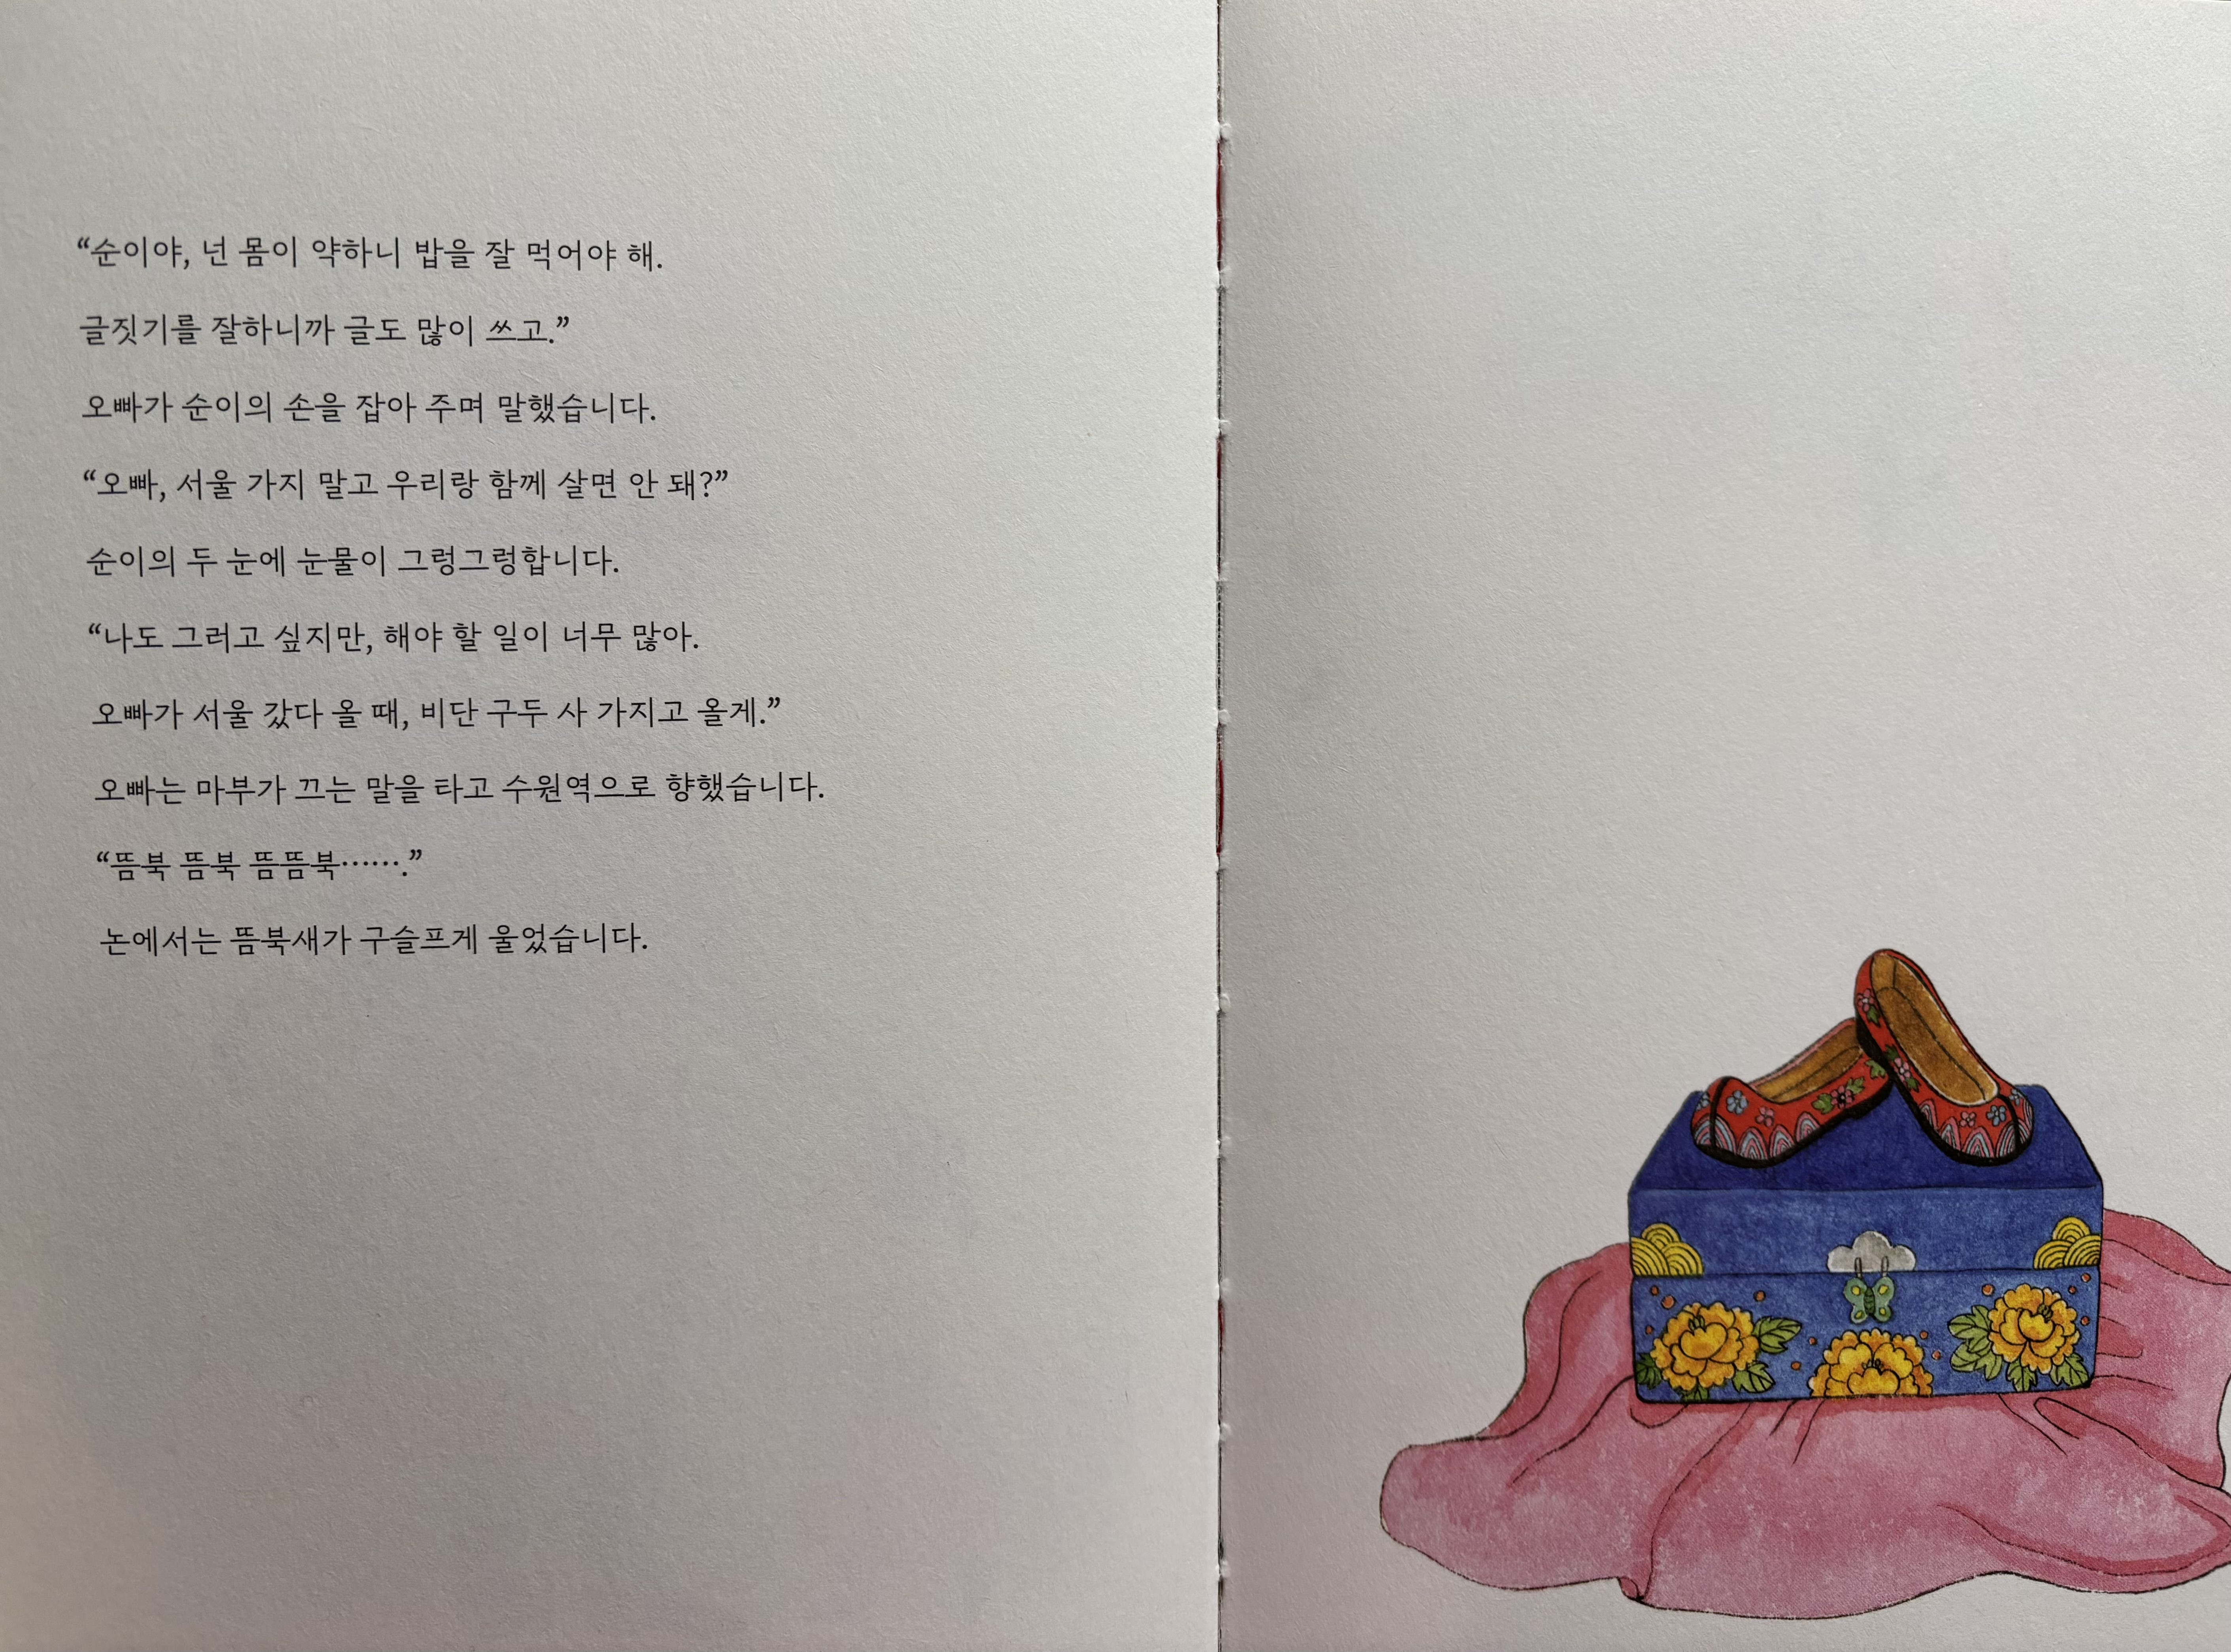 “순이야, 넌 몸이 약하니 밥을 잘 먹어야 해.
글짓기를 잘하니까 글도 많이 쓰고.”
오빠가 순이의 손을 잡아 주며 말했습니다.
“오빠, 서울 가지 말고 우리랑 함께 살면 안 돼?”
순이의 두 눈에 눈물이 그렁그렁합니다.
“나도 그러고 싶지만, 해야 할 일이 너무 많아.
오빠가 서울 갔다 올 때, 비단 구두 사 가지고 올게.”
오빠는 마부가 끄는 말을 타고 수원역으로 향했습니다.
“뜸북 뜸북 뜸뜸북…….”
논에서는 뜸북새가 구슬프게 울었습니다.